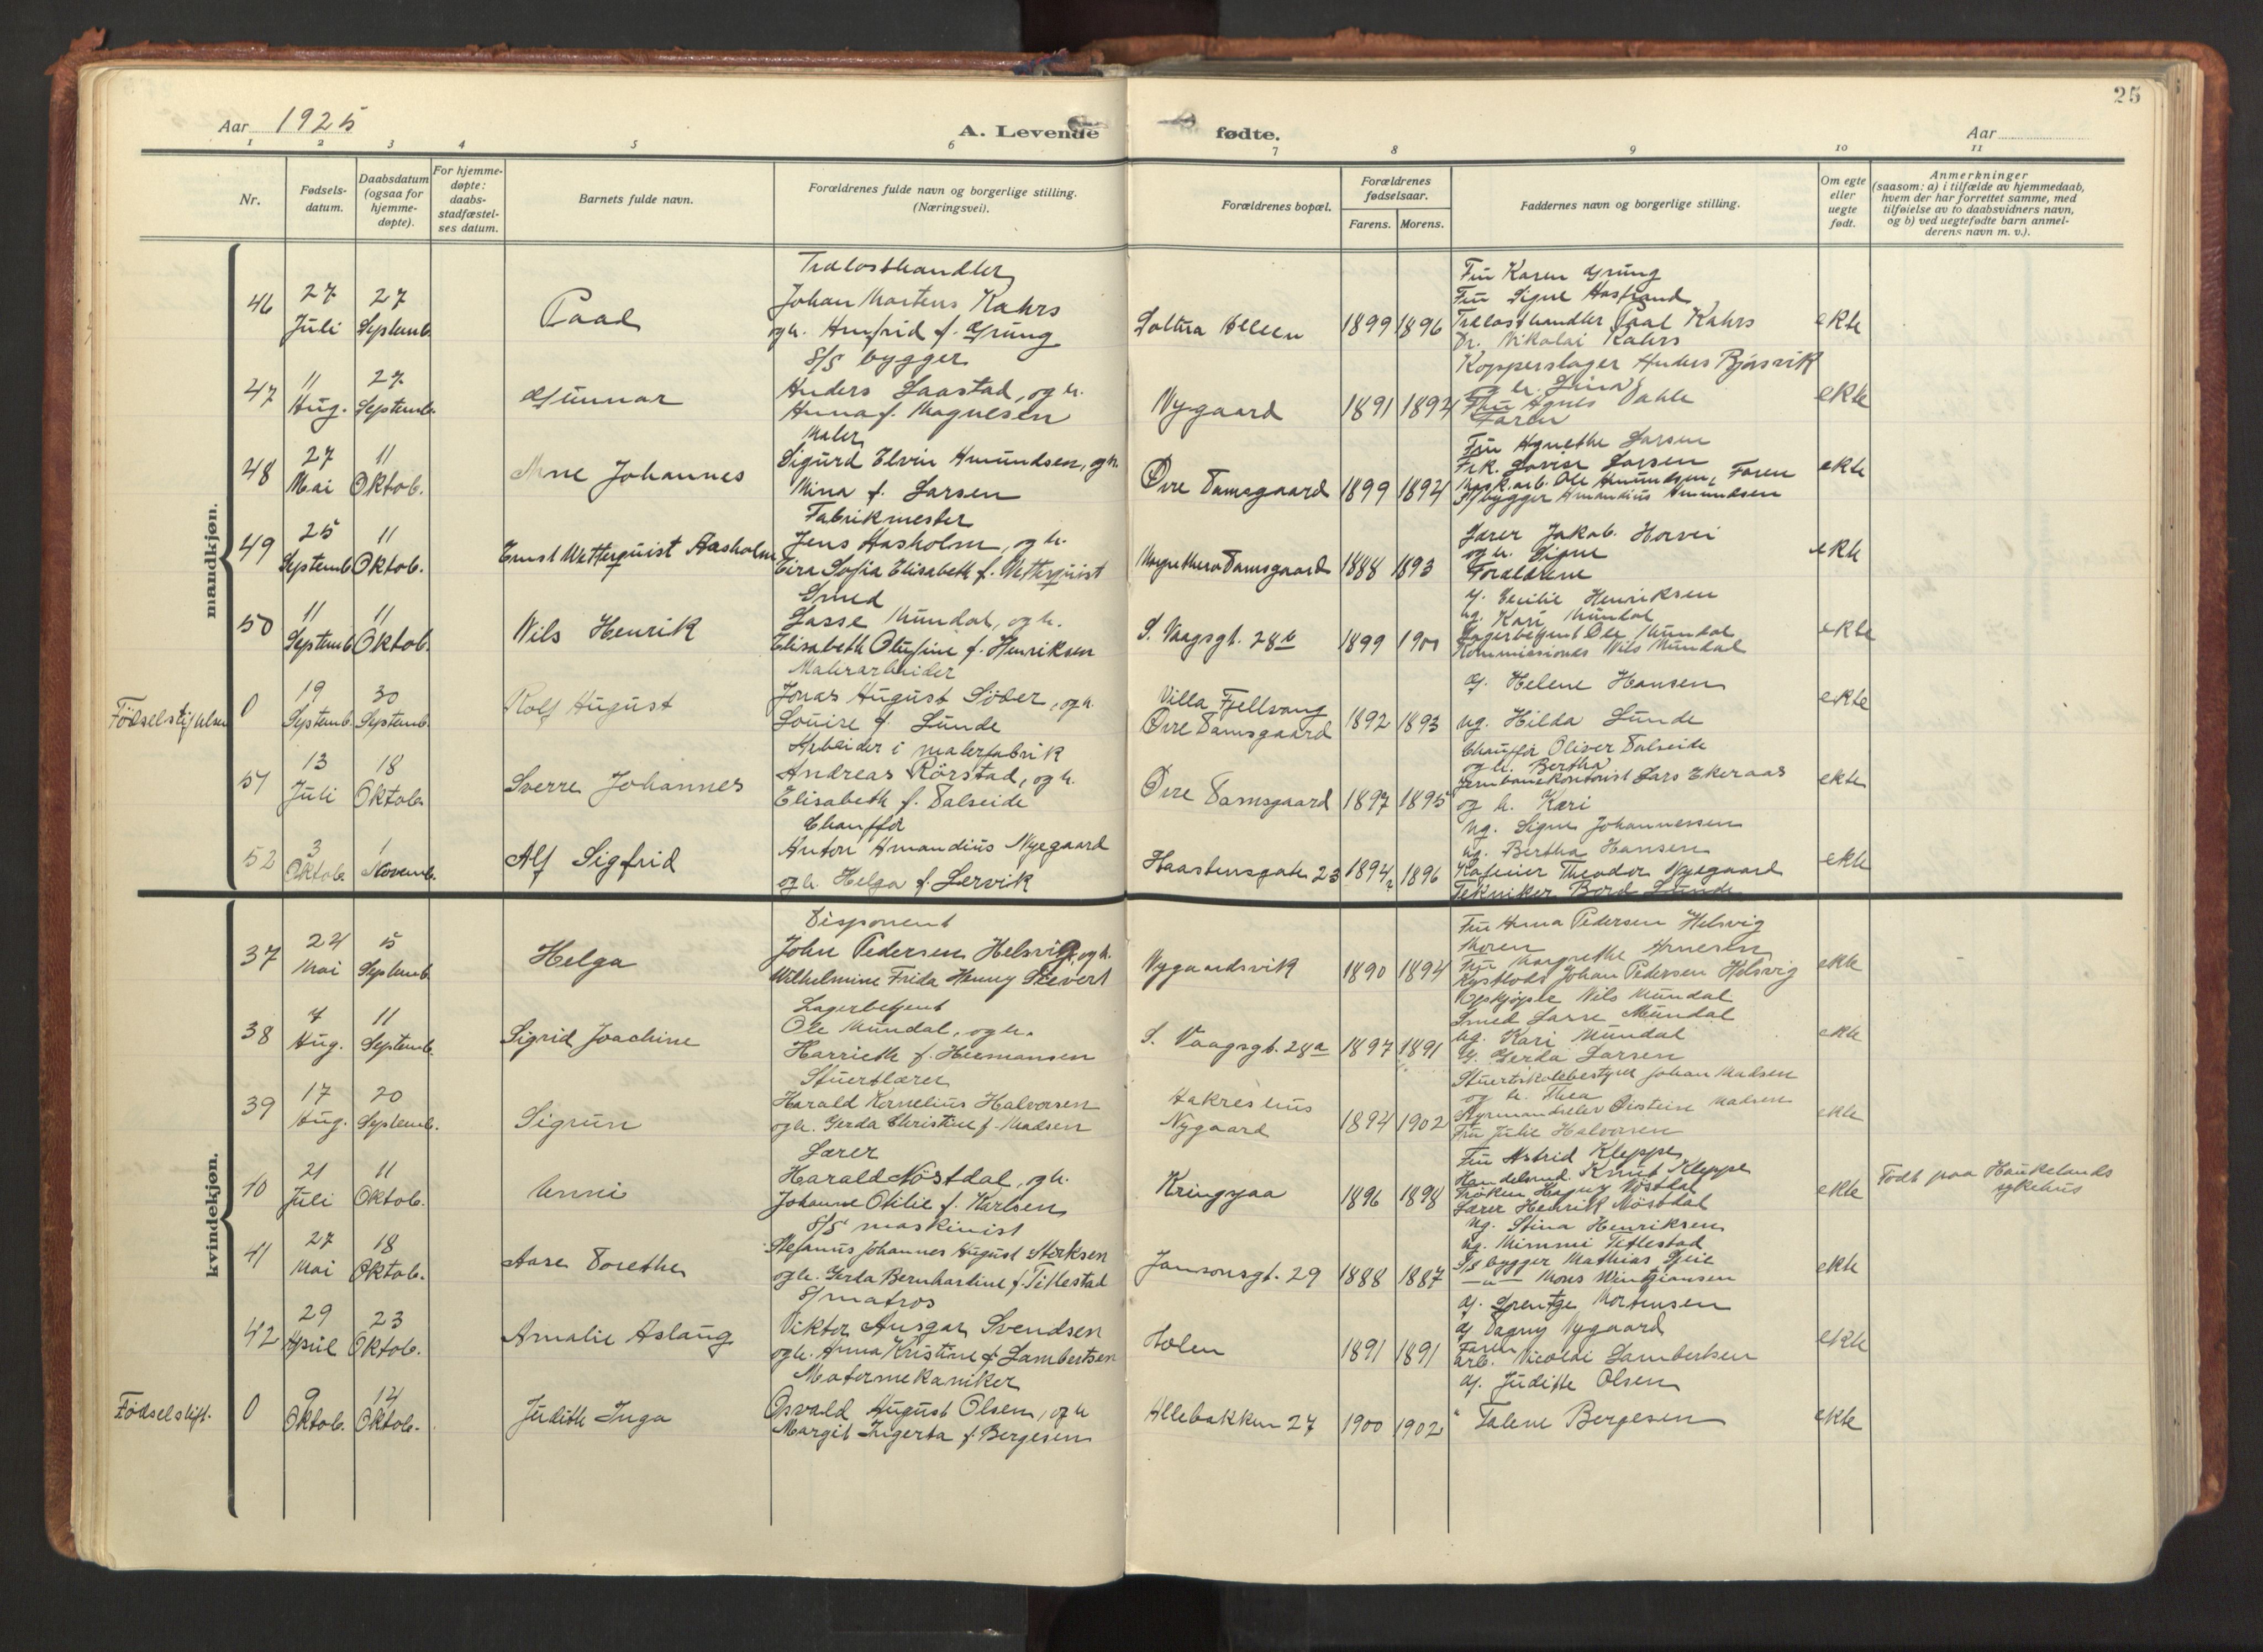 25
Aar 1925
A. Levende fødte.
Aar
1 2 3 4 5 6 7 8 9 10 11
Nr.
Fødsels-datum.
Daabsdatum (ogsaa for hjemme-døpte).
For hjemme-døpte: daabs-stadfæstel-ses datum.
Barnets fulde navn.
Forældrenes fulde navn og borgerlige stilling. (Næringsvei).
Forældrenes bopæl.
Forældrenes fødselsaar.
Farens. Morens.
Faddernes navn og borgerlige stilling.
Om egte eller uegte født.
Anmerkninger
(saasom: a) i tilfælde av hjemmedaab,
hvem der har forrettet samme, med
tilføielse av to daabsvidners navn,
og b) ved uegtefødte barn anmel-
derens navn m. v.).
mandkjøn.
46
27 Juli
27 Septemb.
Paal
Johan Martens Kahrs
og h. f. Grung
1899 1896
Fru Karen Grung
Fru Signe
Paal Kahrs
Dr. Nikolai Kahrs
ekte
47
11 Aug.
27 Septemb.
Gunnar
S/S bygger
Anders Saastad, og h.
Anna f. Magnesen
Nygaard
1891 1894
Kopperslager Anders
og h.
Fru Agnes Dahle
Faren
ekte
48
27 Mai
11 Oktob.
Arne Johannes
Maler
Sigurd Elvin Amundsen, og h.
Mina f. Larsen
Øvre Damsgaard
1899 1894
Fru Agnethe Larsen
Frk. Lovise Larsen
Mask.arb. Ole Amundsen, Faren
S/Sbygger Amandius Amundsen
ekte
49
25 Septemb.
11 Oktob.
Ernst Wetterquist Aasholm
Fabrikmester
Jens Aasholm, og h.
Eira Sofia Elisabeth f. Wetterquist
Damsgaard
1888 1893
Lærer Jakob Horvei
og h. Signe
Forældrene
ekte
50
11 Septemb.
11 Oktob.
Nils Henrik
Smed
Lasse Mundal, og h.
Elisabeth Olufine f. Henriksen
S. Vaagsgt. 28b
1899
G. Cecilie Henriksen
ug. Kari Mundal
Lagerbetjent Ole Mundal
Nils Mundal
ekte
Fødselstiftelsen
0
19 Septemb.
30 Septemb.
Rolf August
Malerarbeider
Jonas August Söder, og h.
Louise f. Lunde
Villa Fjellvang
Øvre Damsgaard
1892 1893
G. Helene Hansen
ug. Hilda Lunde
ekte
51
13 Juli
18 Oktob.
Sverre Johannes
Arbeider i malerfabrik
Andreas Rörstad, og h.
Elisabeth f. Dalseide
Øvre Damsgaard
1897 1895
Chauffør Oliver Dalseide
og h. Bertha
Jernbanekontorist Lars Ekeraas
og h. Kari
ekte
52
3 Oktob.
1 Novemb.
Alf Sigfrid
Chauffør
Anton Amandius Nygaard
og h. Helga f. Lervik
Haastensgate 23
1894 1896
ug. Signe Johannessen
ug. Bertha Hansen
Theodor Nygaard
Tekniker Bård Lunde
ekte
kvindekjøn.
37
24 Mai
5 Septemb.
Helga
Disponent
John Pedersen Helsvig, og h.
Wilhelmine Frida Henny Sievert
Nygaardsvik
1890 1894
Fru Anna Pedersen Helsvig
Moren
Fru Margrethe Arnesen
Kystlods Johan Pedersen Helsvig
ekte
38
7 Aug.
11 Septemb.
Sigrid Joachine
Lagerbetjent
Ole Mundal, og h.
Harrieth f. Hermansen
S. Vaagsgt. 28a
1897 1891
Opkjøper Nils Mundal
Smed Lasse Mundal
ug. Kari Mundal
G. Gerda Larsen
ekte
39
17 Aug.
20 Septemb.
Sigrun
Stuertlærer
Harald Kornelius Halvorsen
og h. Gerda Christine f. Madsen
Nygaard
1894 1902
Stuertskolebestyrer Johan Madsen
og h. Thea
Styrmandselev Øistein Madsen
Fru Julie Halvorsen
ekte
40
21 Juli
11 Oktob.
Unni
Lærer
Harald Nöstdal, og h.
Johanne Otilie f. Karlsen
Kringsjaa
1896 1898
Fru Astrid Kleppe
Handelsmd. Knut Kleppe
Frøken Nöstdal
Lærer Henrik Nöstdal
ekte
Født paa Haukelands
sykehus
41
27 Mai
18 Oktob.
Aase Dorethea
S/S maskinist
Stefanus Johannes August Sterksen
og h. Gerda Bernhardine f. Titlestad
Jansonsgt. 29
1888 1887
ug. Stina Henriksen
ug. Mimmi Titlestad
S/S bygger Mathias
Mons
ekte
42
29 April
23 Oktob.
Amalie Aslaug
S/S matros
Viktor Ansgar Svendsen
og h. Anna Kristine f. Lambertsen
Holen
1891 1891
G. Mortensen
G. Dagny Nygaard
Faren
arb. Nicolai Lambertsen
ekte
Fødselstift.
0
9 Oktob.
14 Oktob.
Judith Inga
Motormekaniker
Osvald August Olsen, og h.
Margit Ingerta f. Bergesen
Allebakken 27
1900 1902
G. Judithe Olsen
" Talene Bergesen
ekte